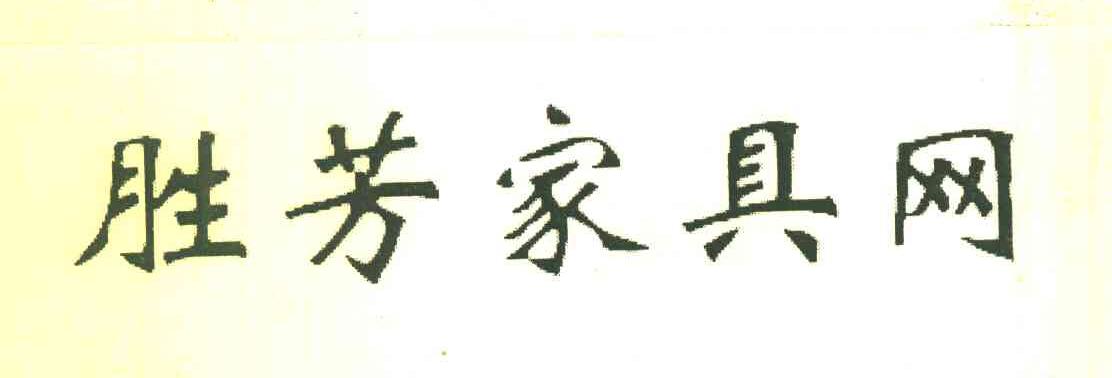 胜芳家具网